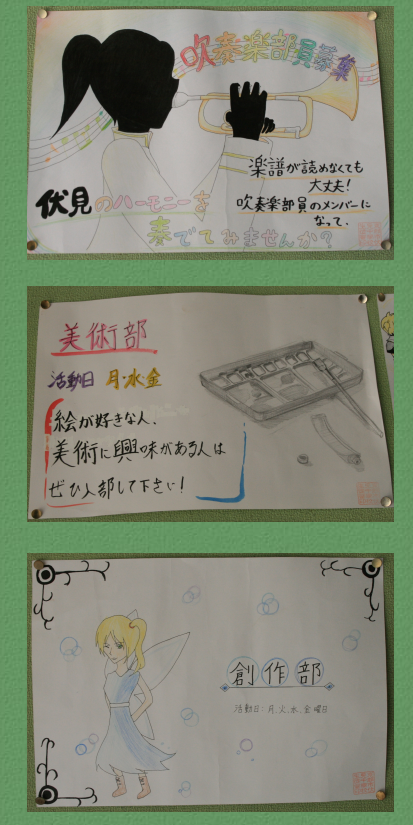 吹奏楽部員募集
楽譜が読めなくても
大丈夫!
吹奏楽部員のメンバーに
なって、
伏見のハーモニーを
奏でてみませんか?
美術部
活動日 月・水・金
絵が好きな人、
美術に興味がある人は
ぜひ入部して下さい!
創作部
活動日:月、火、水、金曜日